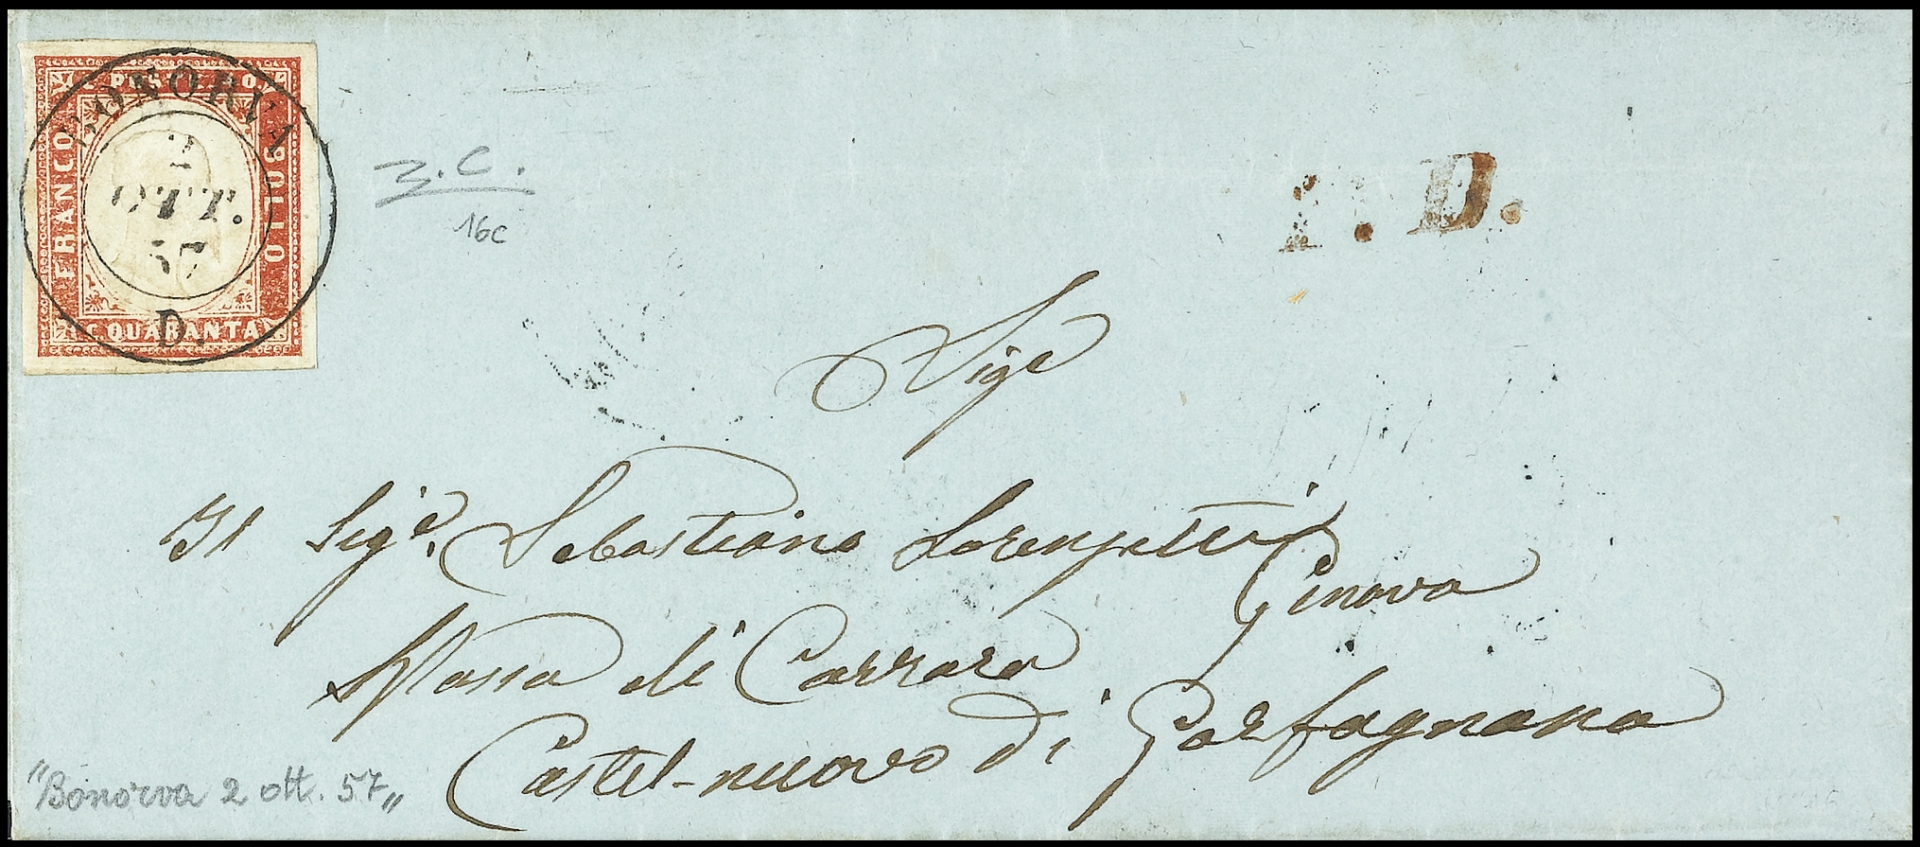 C. POSTE 40.
FRANCO
BOLLO
C. QUARANTA
BONORVA
2
OTT.
57
D.
16c
P. D.
Sige
Il Sigr. Sebastiano Lorenzetti
Genova
Massa di Carrara
Castel-nuovo di Garfagnana
"Bonorva 2 ott. 57"